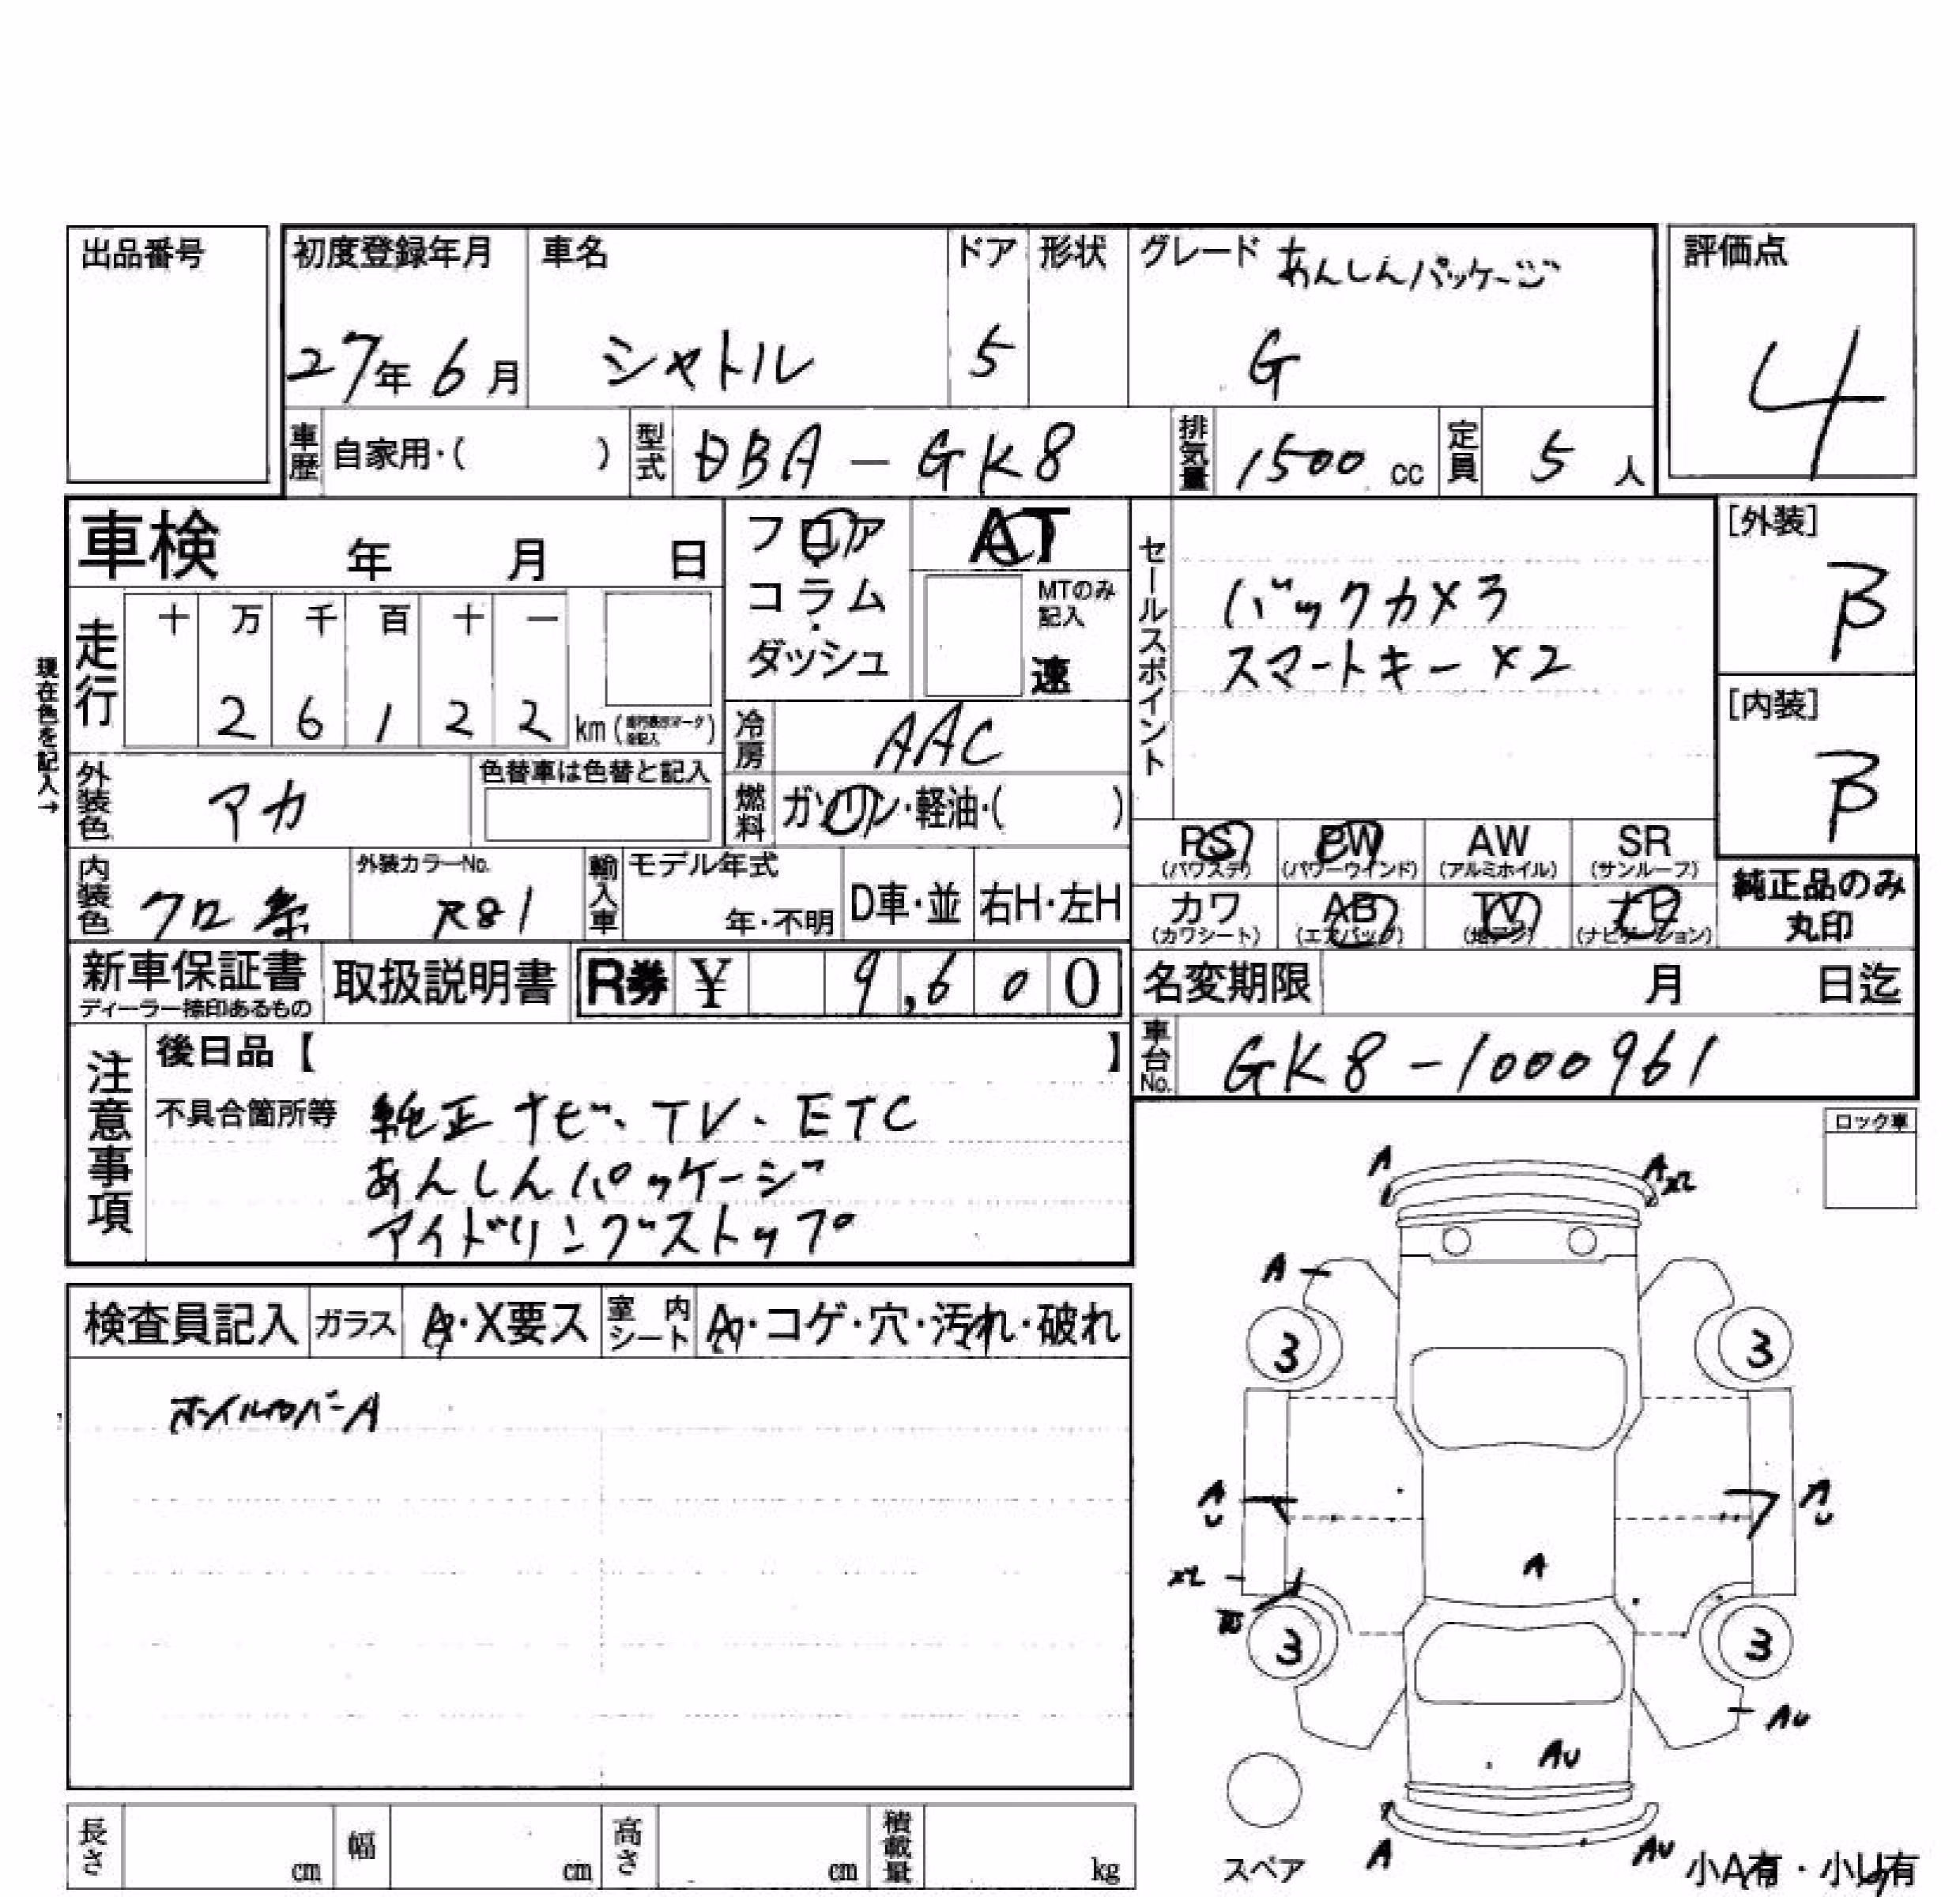 出品番号
初度登録年月 車名 ドア 形状 グレード あんしんパッケージ 評価点
27年 6月 シャトル 5 G 4
車歴 自家用・( ) 型式 DBA-GK8 排気量 1500 cc 定員 5 人
車検 年 月 日 フロア AT
コラム
ダッシュ
MTのみ記入
速
セールスポイント
バックカメラ
スマートキー×2
[外装]
B
[内装]
B
現在色を記入→
走行 十 万 千 百 十 一
2 6 1 2 2 km
冷房 AAC
外装色 アカ 色替車は色替と記入
燃料 ガソリン・軽油・( )
PS (パワステ) PW (パワーウインド) AW (アルミホイル) SR (サンルーフ)
カワ (カワシート) AB (エアバック) TV (地デジ) ナビ (ナビゲーション)
純正品のみ
丸印
内装色 クロ系 外装カラーNo. R81 輸入車 モデル年式 年・不明 D車・並 右H・左H
新車保証書 取扱説明書 R券 ¥ 9,600
ディーラー捺印あるもの
名変期限 月 日迄
車台No. GK8-1000961
注意事項
後日品【 】
不具合箇所等 純正ナビ、TV、ETC
あんしんパッケージ
アイドリングストップ
ロック車
検査員記入 ガラス A・X要ス 室内シート A・コゲ・穴・汚れ・破れ
ホイルカバーA
A A
A
3 3
A U A U
A
3 3
AU
AU
スペア A AU 小A有・小U有
長さ cm 幅 cm 高さ cm 積載量 kg